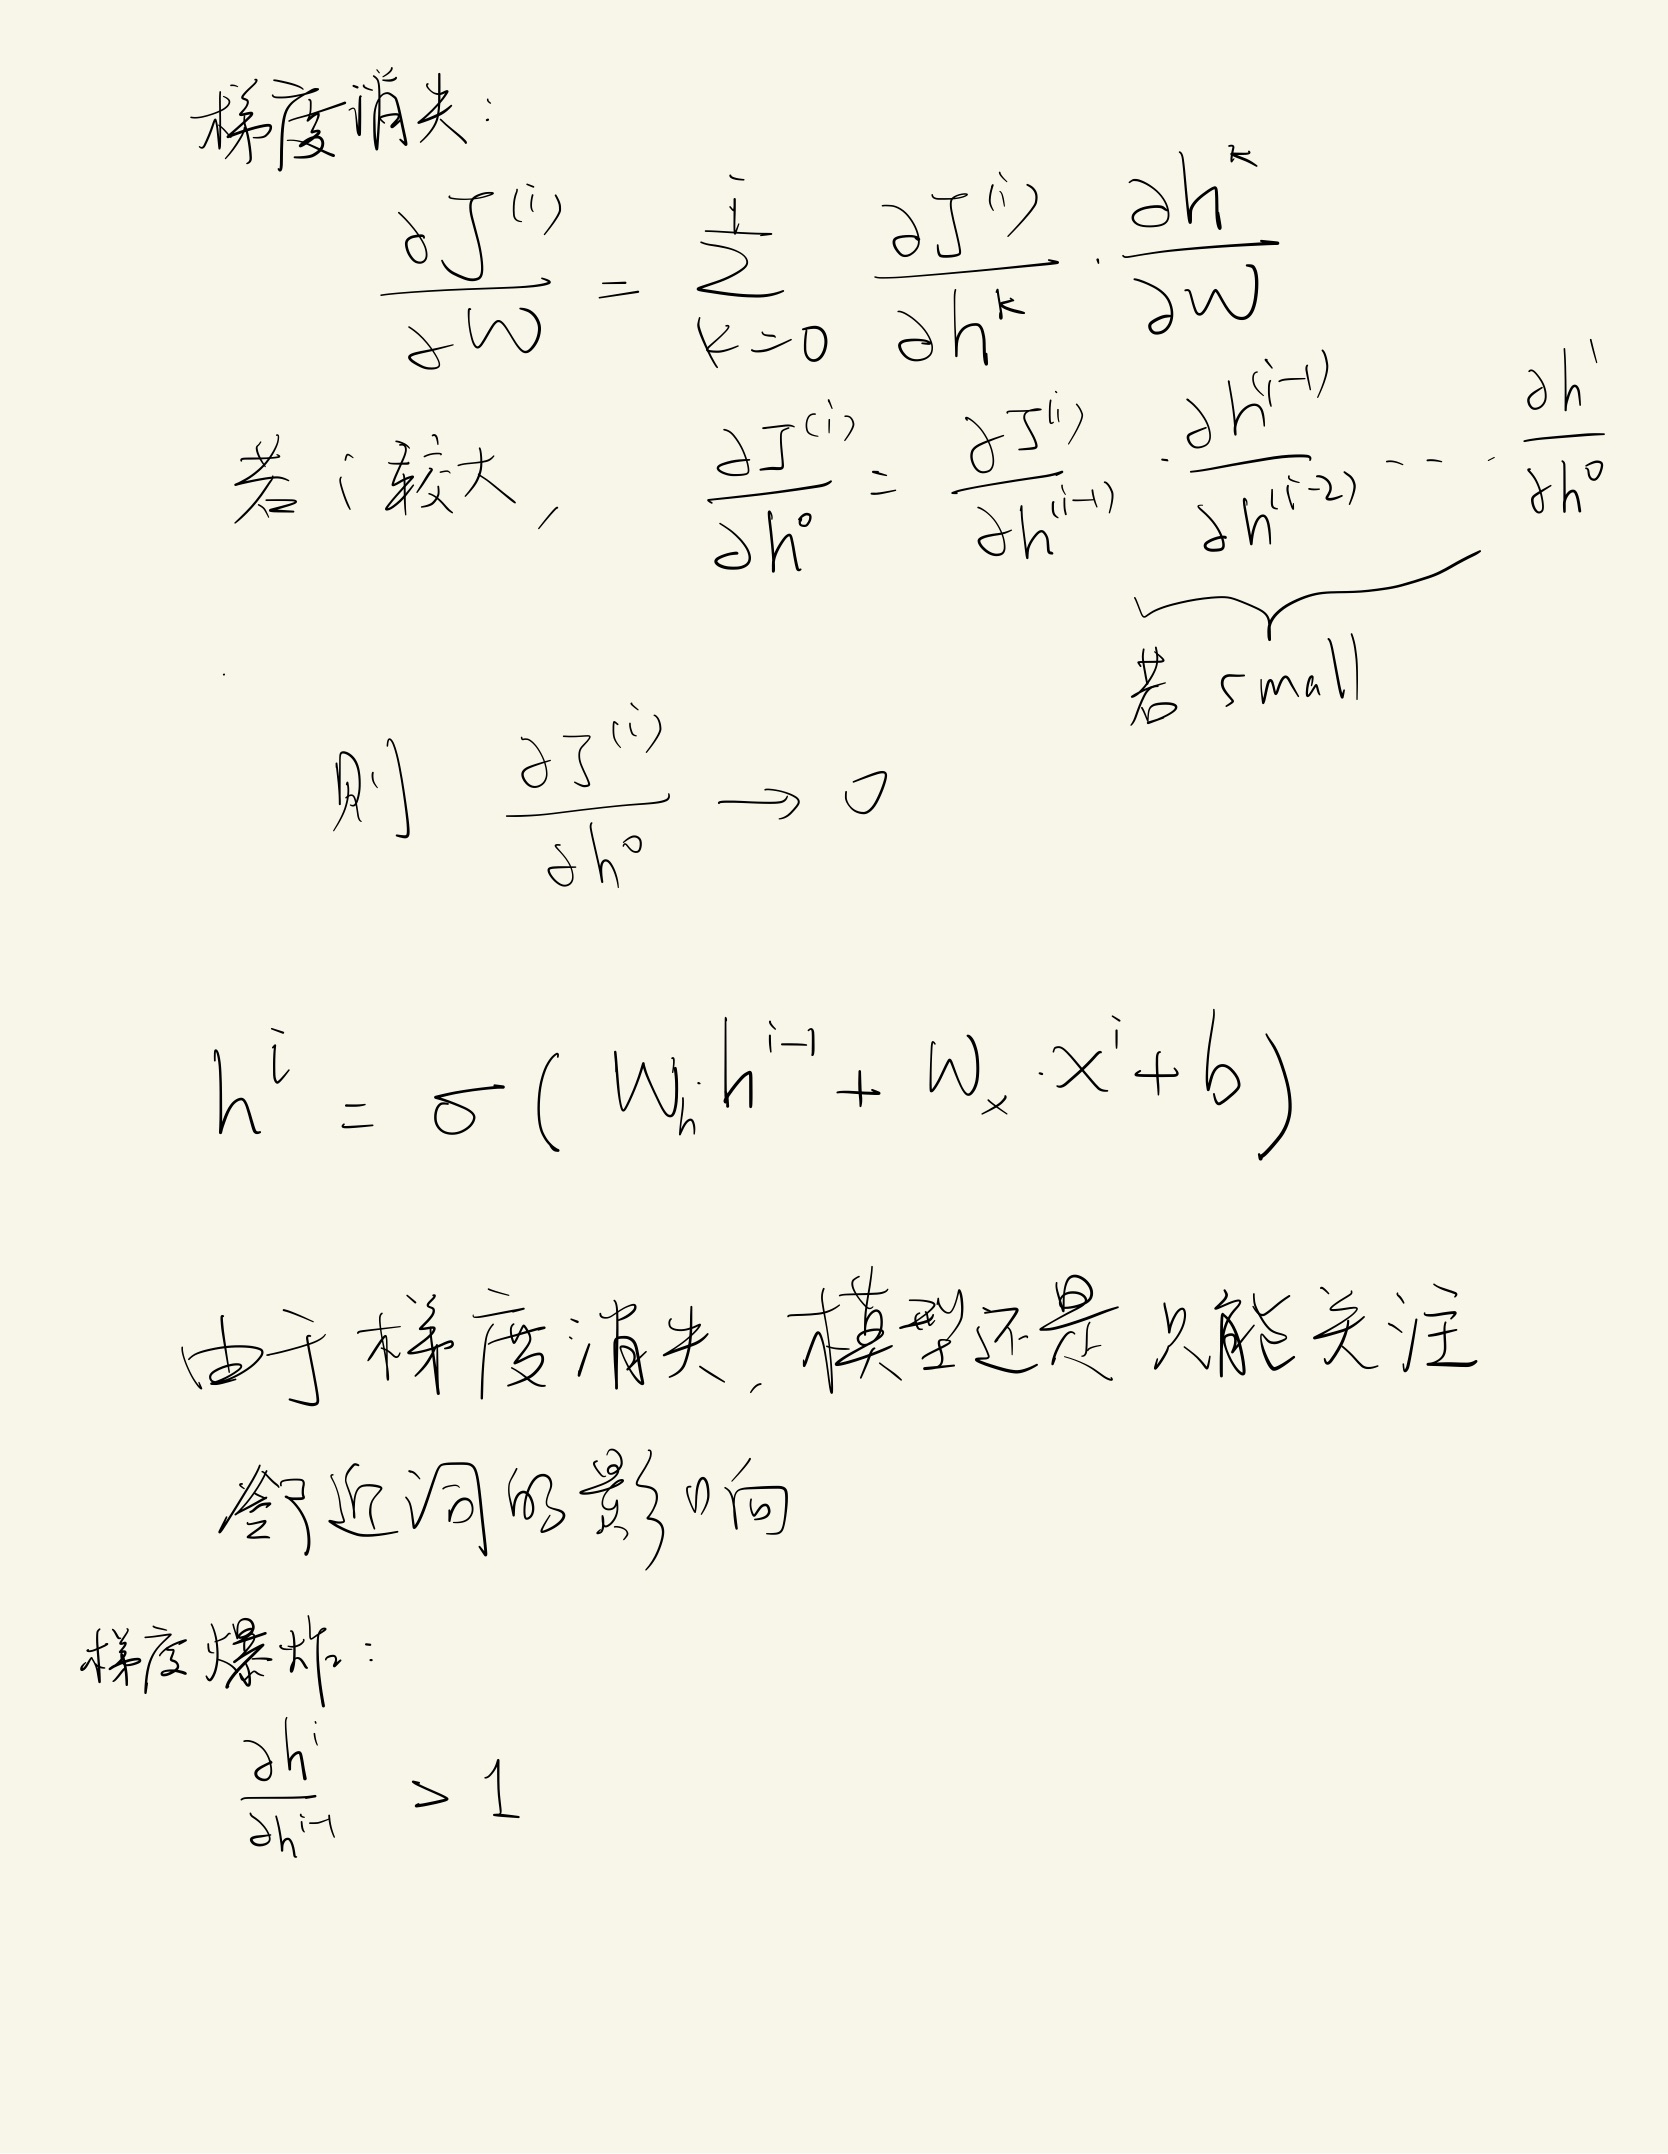 梯度消失:
∂J^(i)/∂W = Σ_{k=0}^{i} ∂J^(i)/∂h^k · ∂h^k/∂W
若 i 较大, ∂J^(i)/∂h^0 = ∂J^(i)/∂h^(i-1) · ∂h^(i-1)/∂h^(i-2) --- · ∂h^1/∂h^0
若 small
则 ∂J^(i)/∂h^0 → 0
h^i = σ( W_h · h^{i-1} + W_x · x^i + b )
由于梯度消失, 模型还是只能关注
邻近词的影响
梯度爆炸:
∂h^i/∂h^{i-1} > 1